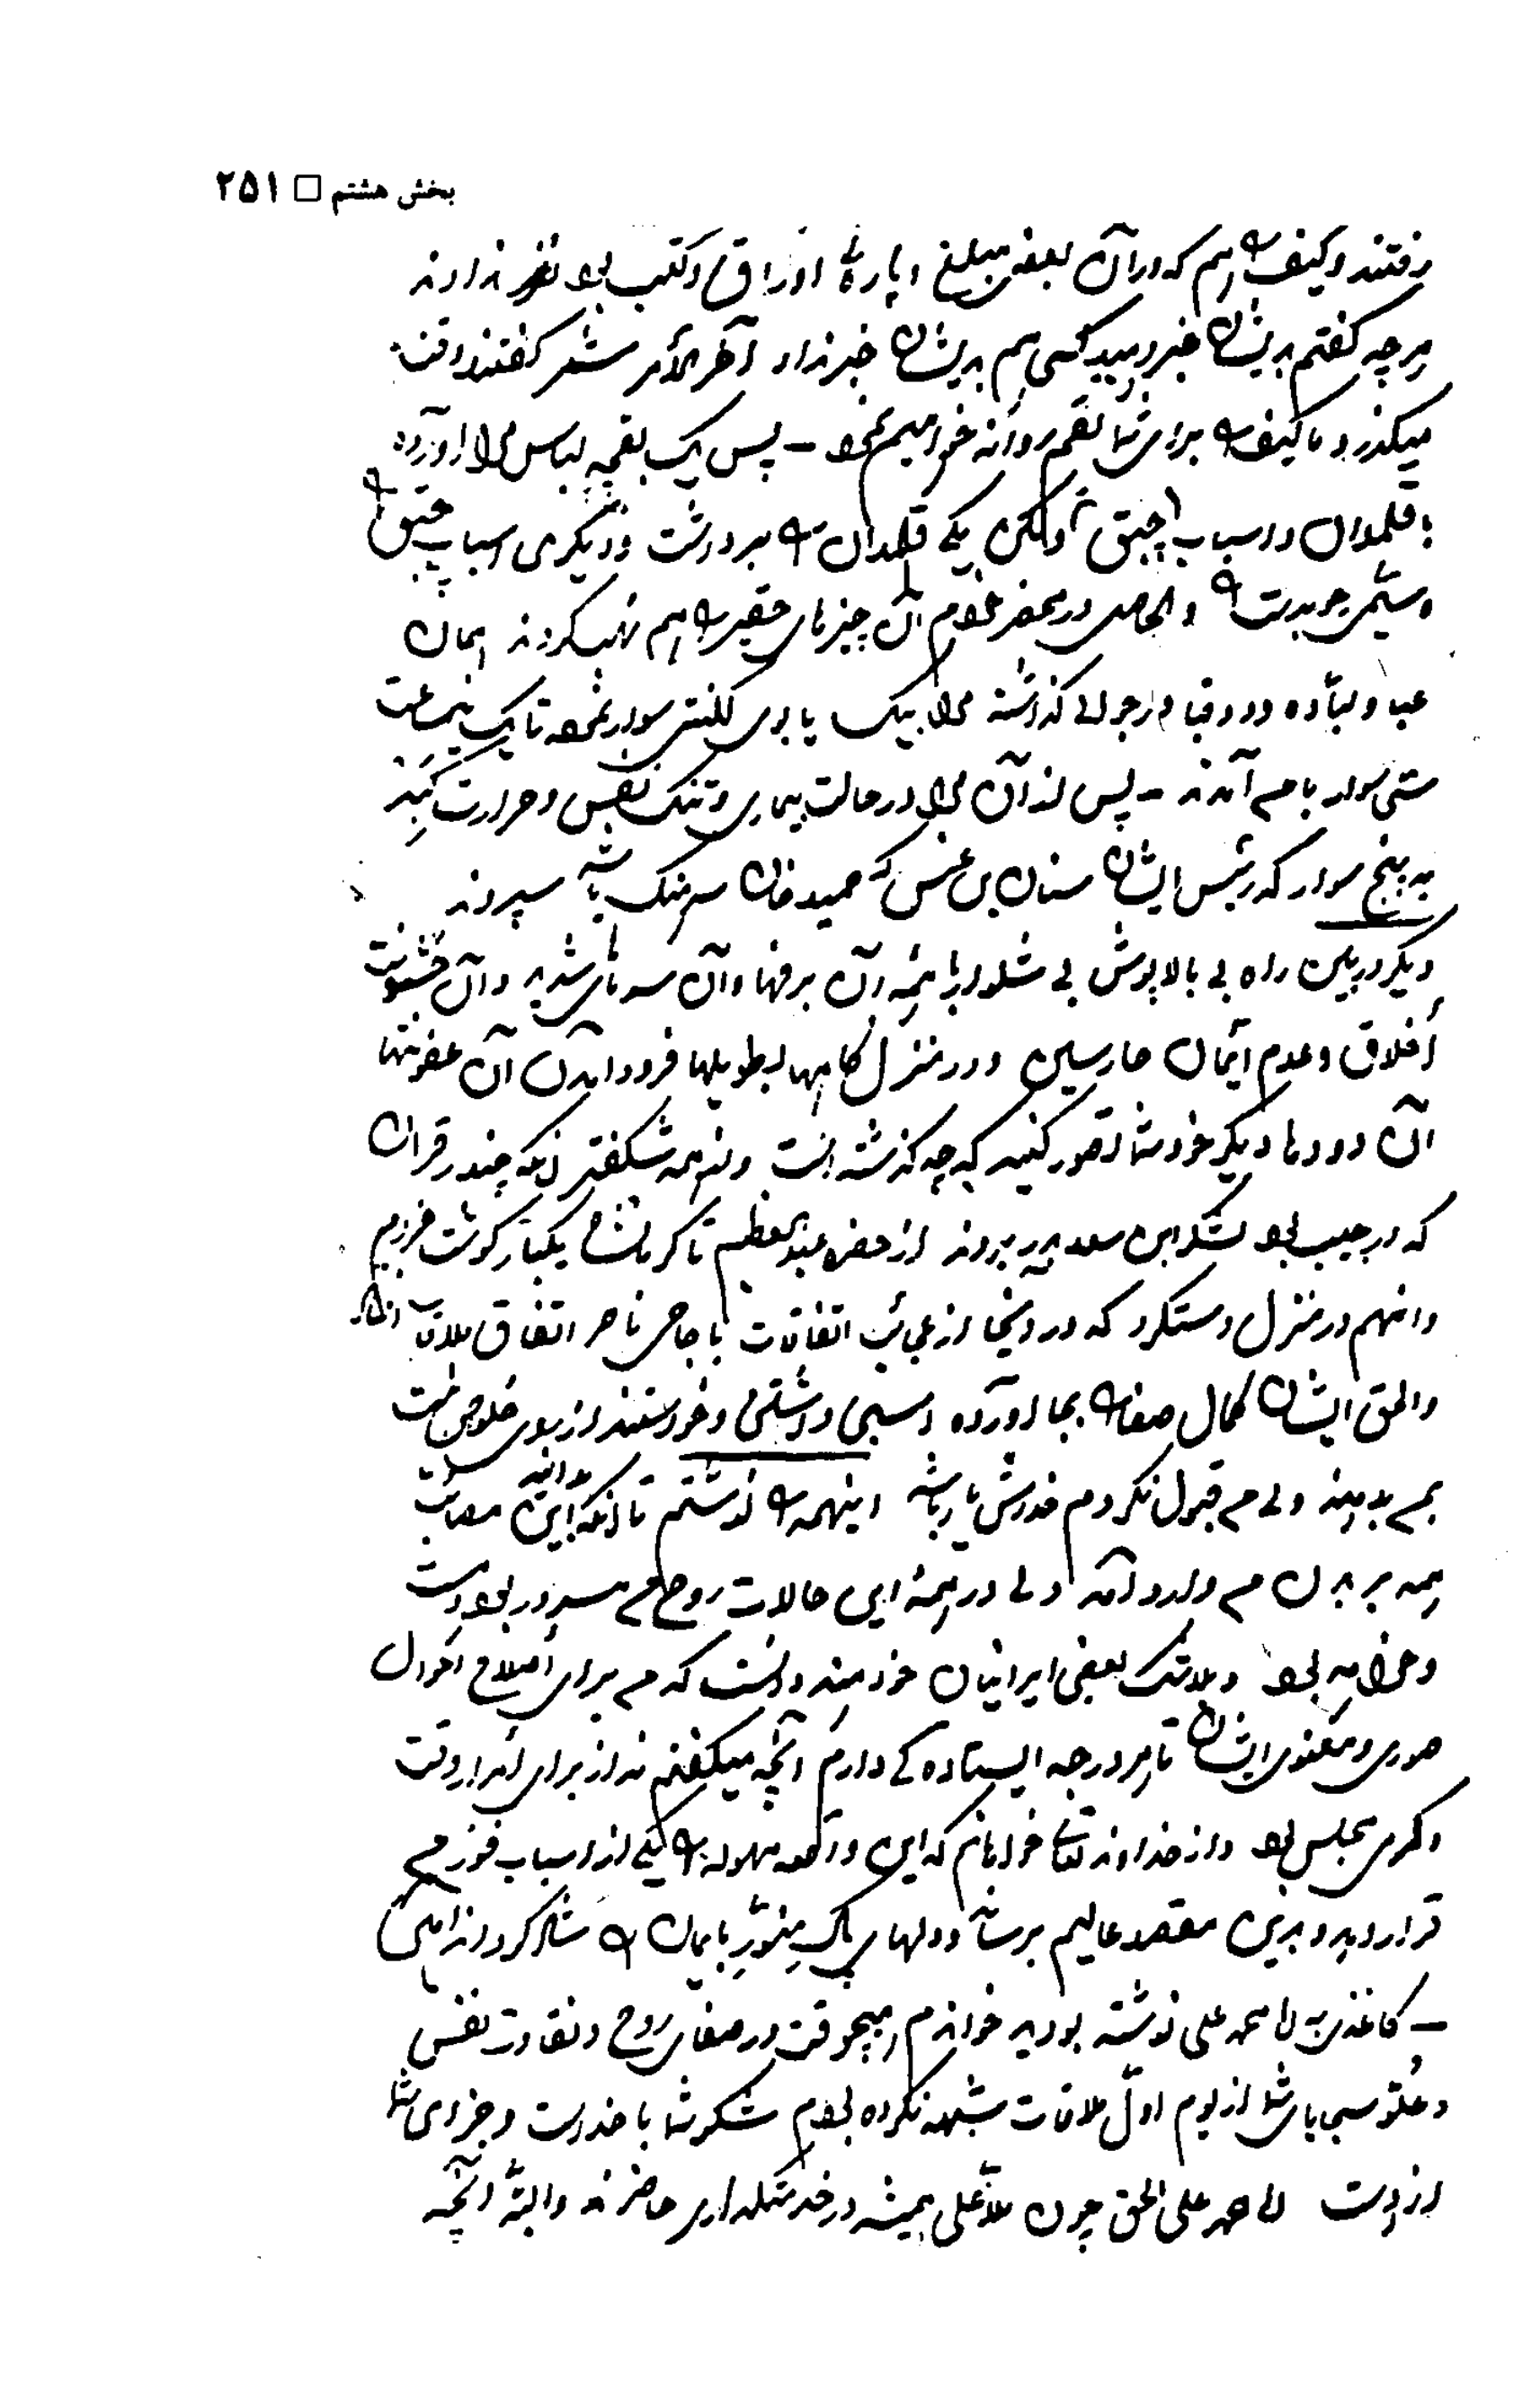 بخش هشتم □ ۲۵۱
رفتند و کیف را هم که در آن بعض مبلغ و پارهٔ اوراق و کتب بود نداوند
هر چه گفتم بایشان خبر دهید کسی هم بایشان خبر نداد آخر الأمر گفتند وقت
میگذرد ما کیف را برای شما بقم روانه خواهیم نمود – پس یک بقچه لباس مرا آورده
با قلمدان و اسباب چپق ولکن یکی قلمدان را برداشت و دیگری اسباب چپق را
و سیمی جوبدست را والحاصل در محضر غلام آن چیزهای حقیر را هم نهب کردند همان
عبا و لباده و دو قبا و ارخالق گذاشته مرا بیک یابوی لکنتی سوار نموده تا یک نیم ساعت
ستی سوار با من آمدند – پس از آن مرا در حالت بیماری و تنگ نفس و حرارت کبد
به پنج سوار که رئیس ایشان سنان بن عنس که حمید خان سرهنگ باشد سپردند
دیگر در این راه بی بالاپوش بی شلوار با همهٔ آن برفها و آن سرماهای شدید و آن خشونت
أخلاق و عدم ایمان حارسین و در منزل گاهها بطویلها فرود آمدن آن عفونتها
آن دودها دیگر خود شما تصور کنید که چه گذشته است و از همه شگفتر آنکه چند قران
که در جیب بود لشکر ابن سعد بدر بردند از حضرت عبدالعظیم تا کرمانشاه یکبار گوشت خوردیم
و انهم در منزل دستگرد که در آنجا از عجائب اتفاقات با حاجی ناصر اتفاق ملاقات افتاد
والحق ایشان کمال صفا را بجا آورده اسبی داشتن و خواستند از بوی خلوص نیت
بمن بدهند ولی من قبول نکردم خدایش یار باشد اینهمه را نوشتم تا آنکه بدانید این مصائب
همه بر بدن من وارد آمد ولی در همهٔ این حالات روح من مسرور بود و هست
و خواهد بود و بلاشک بعضی ایرانیان خردمند دانست که من برای اصلاح احوال
صوری و معنوی ایشان تا بهر درجه ایستادهگی دارم آنچه میگفتم نه از برای امرار وقت
و گرمی مجلس بود و از خداوند تعالی خواهانم که این واقعه مهوله را یکی از اسباب فوز من
قرار دهد و بدین مقصد عالیم برساند و دلهای پاک منوّر بایمان را شاد گرداند الهی آمین
– کاغذی به ملا محمد علی نوشته بودید خواندم هیچوقت در صفای روح و نقاوت نفس
و علوّ سجایای شما از یوم اوّل ملاقات شبهه نکرده بودم شکر شما با خداست و جزای شما
از اوست ملا محمد علی الحق چون ملا علی همیشه در خدمتگذاری حاضرند و البته آنچه